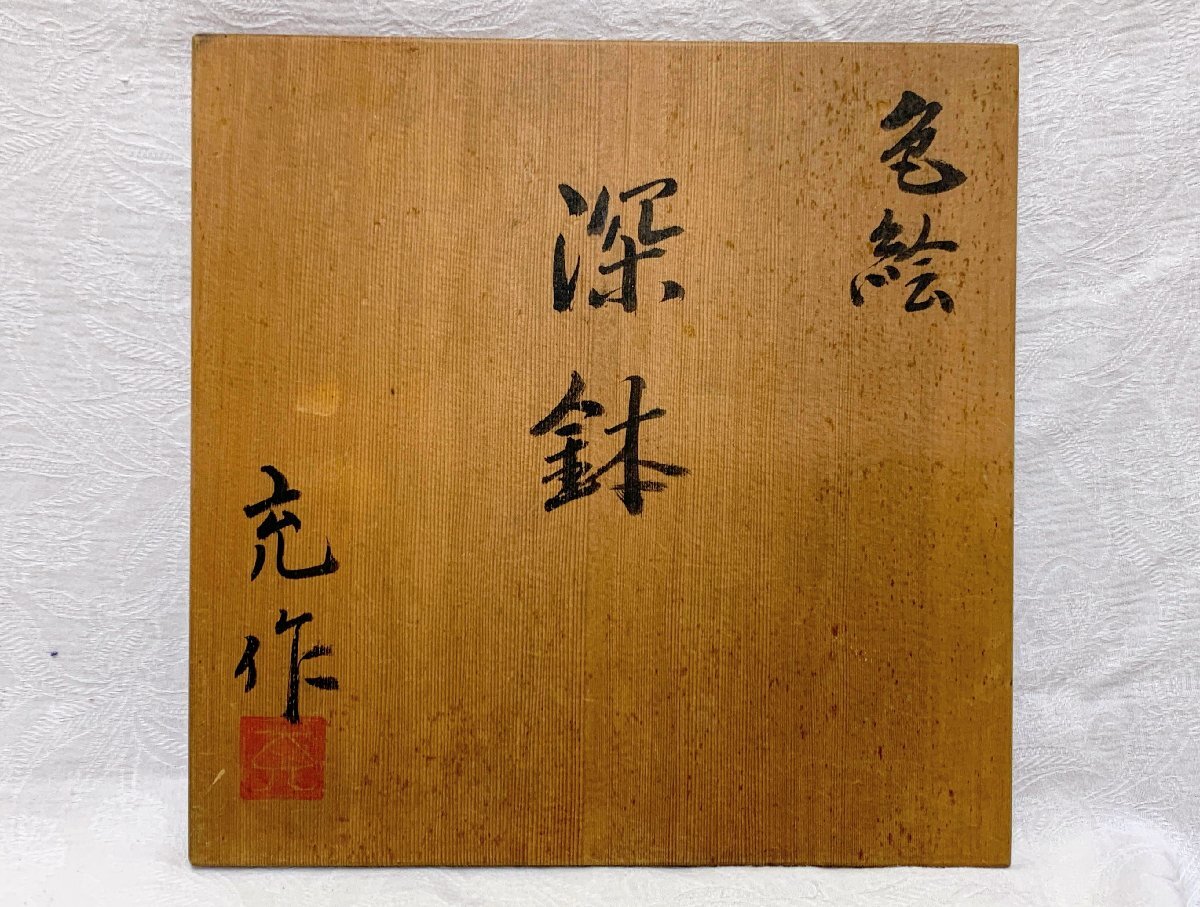 色絵
深鉢
充作